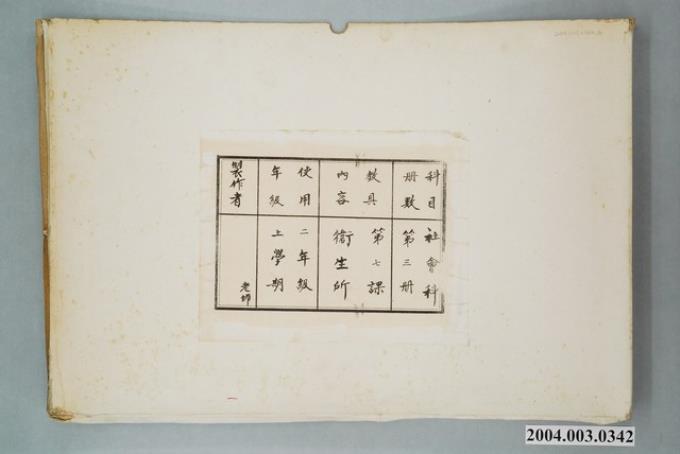 科目 社會科
册數 第三册
教具 第七課
內容 衛生所
使用 二年級
年級 上學期
製作者 老師
2004.003.0342